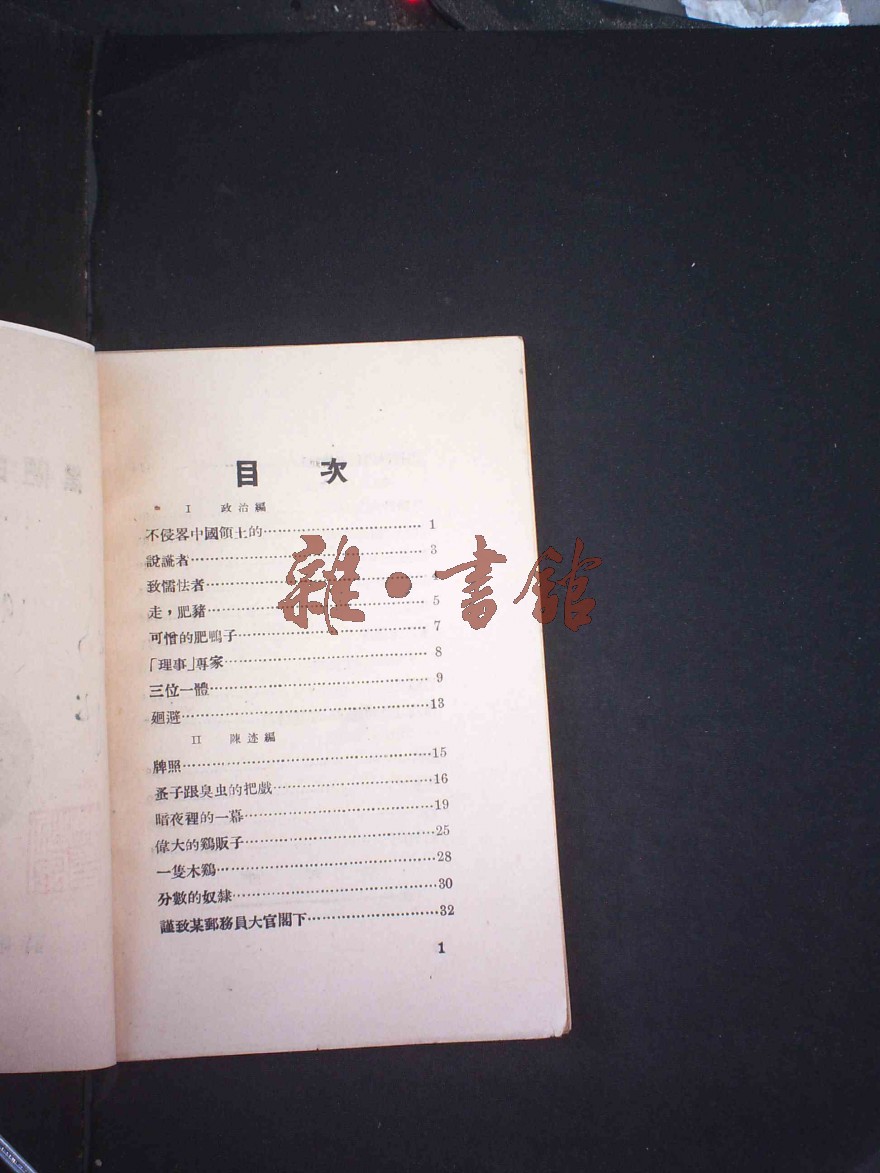 目 次
I 政治編
不侵畧中國領土的…………………………1
說謊者…………………………3
致懦怯者…………………………4
走，肥豬…………………………5
可憎的肥鴨子…………………………7
「理事」專家…………………………8
三位一體…………………………9
廻避…………………………13
II 陳迹編
牌照…………………………15
蚤子跟臭虫的把戲…………………………16
暗夜裡的一幕…………………………19
偉大的鷄販子…………………………25
一隻木鷄…………………………28
分數的奴隸…………………………30
謹致某郵務員大官閣下…………………………32
1
雜·書館